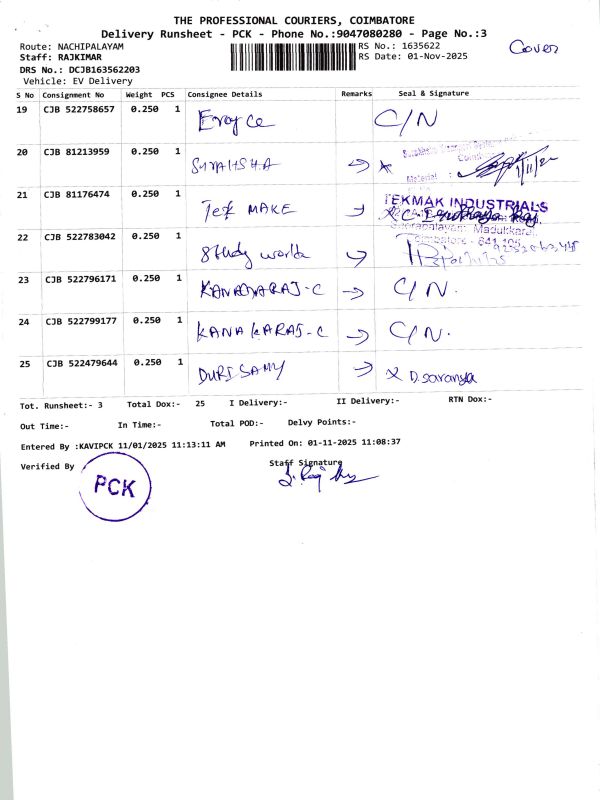 THE PROFESSIONAL COURIERS, COIMBATORE
Delivery Runsheet - PCK - Phone No.:9047080280 - Page No.:3
Route: NACHIPALAYAM
RS No.: 1635622
Cover
Staff: RAJKIMAR
RS Date: 01-Nov-2025
DRS No.: DCJB163562203
Vehicle: EV Delivery
S No Consignment No Weight PCS Consignee Details Remarks Seal & Signature
19 CJB 522758657 0.250 1 C/N
20 CJB 81213959 0.250 1
Material :
21 CJB 81176474 0.250 1 Tek MAKE
TEKMAK INDUSTRIALS
22 CJB 522783042 0.250 1 Study world
Coimbatore - 641 105
23 CJB 522796171 0.250 1 KANAGARAJ-C C/N.
24 CJB 522799177 0.250 1 KANAKARAJ-C C/N.
25 CJB 522479644 0.250 1 DURISAMY X D. Saranya
Tot. Runsheet:- 3 Total Dox:- 25 I Delivery:- II Delivery:- RTN Dox:-
Out Time:- In Time:- Total POD:- Delvy Points:-
Entered By :KAVIPCK 11/01/2025 11:13:11 AM Printed On: 01-11-2025 11:08:37
Verified By Staff Signature
PCK